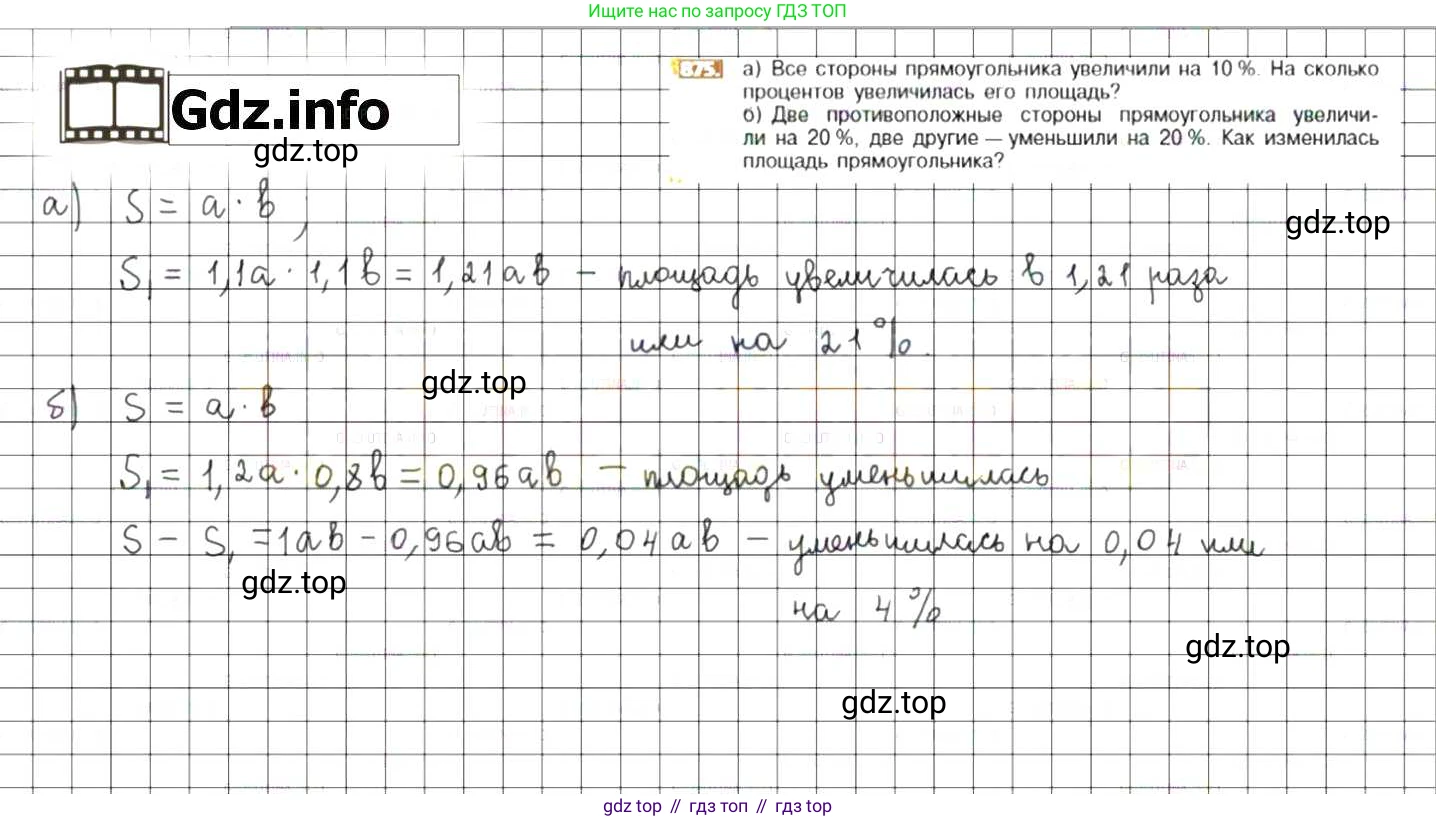 Ищите нас по запросу ГДЗ ТОП
Gdz.info
gdz.top
875. а) Все стороны прямоугольника увеличили на 10 %. На сколько
процентов увеличилась его площадь?
б) Две противоположные стороны прямоугольника увеличи-
ли на 20 %, две другие — уменьшили на 20 %. Как изменилась
площадь прямоугольника?
а) S = a · b,
gdz.top
S₁ = 1,1a · 1,1b = 1,21ab – площадь увеличилась в 1,21 раза
или на 21%.
gdz.top
б) S = a · b
S₁ = 1,2a · 0,8b = 0,96ab – площадь уменьшилась
S – S₁ = 1ab – 0,96ab = 0,04ab – уменьшилась на 0,04 или
gdz.top
на 4%
gdz.top
gdz.top
gdz top // гдз топ // gdz top